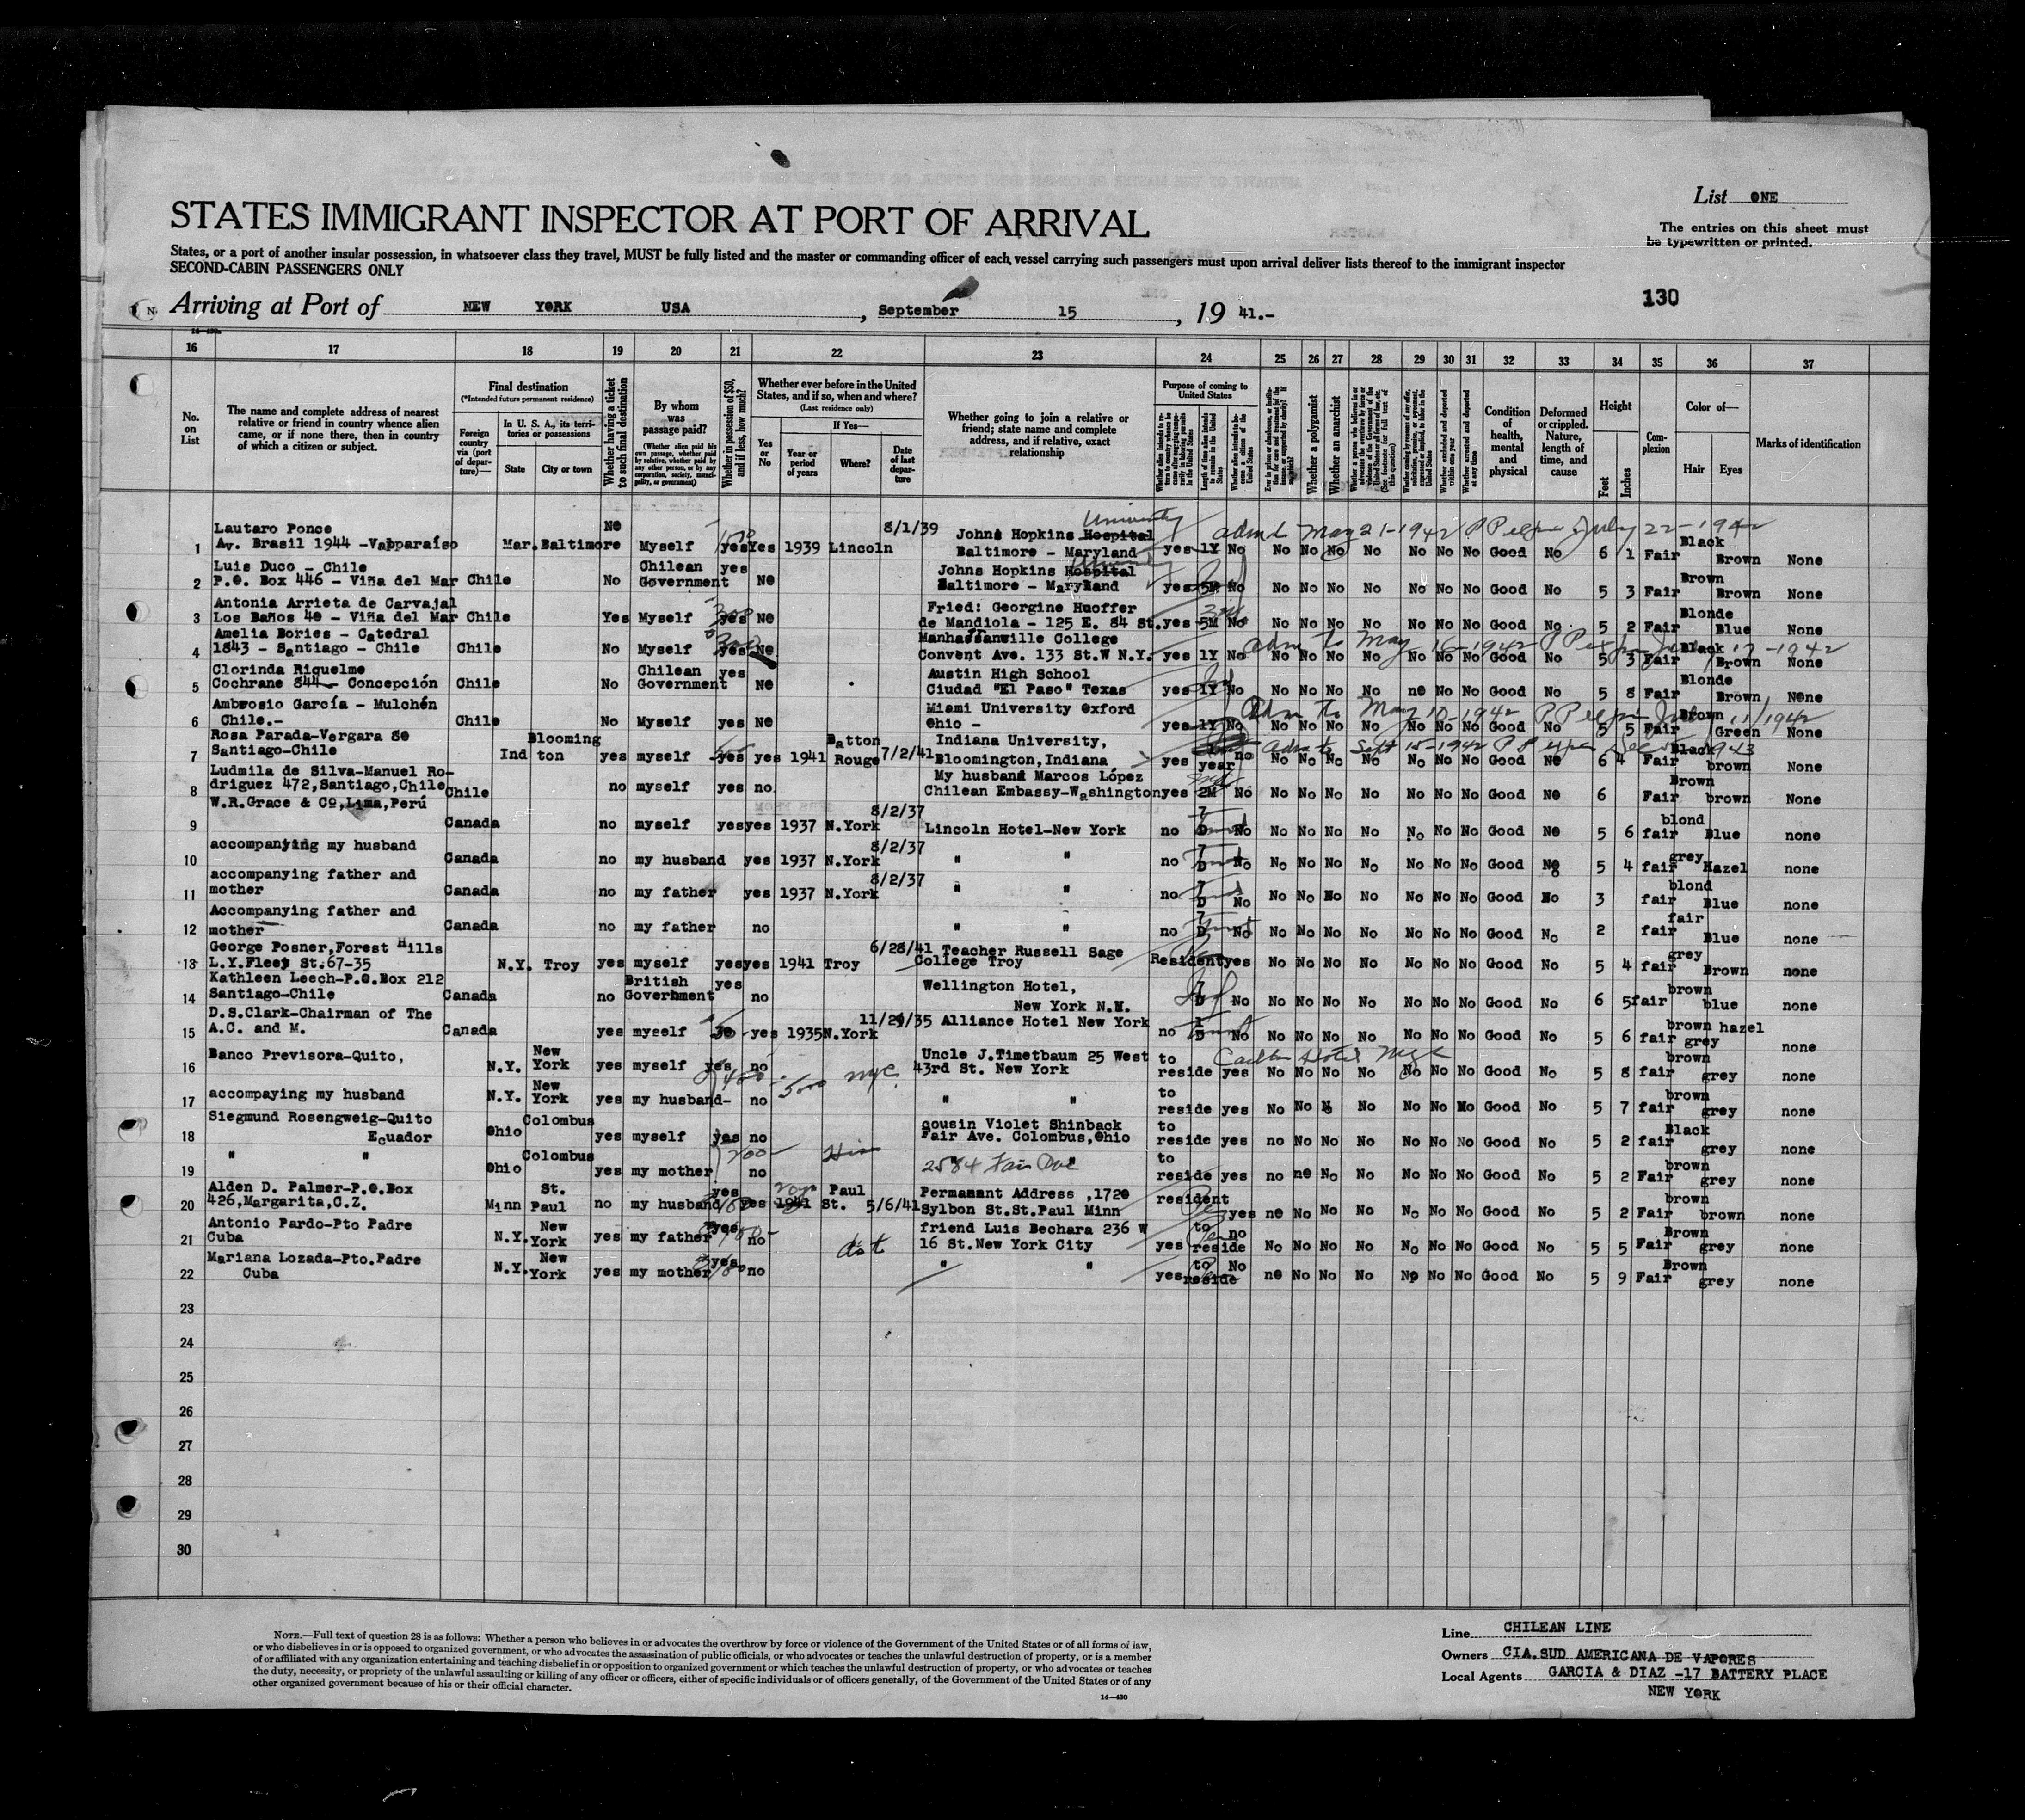 List ONE
STATES IMMIGRANT INSPECTOR AT PORT OF ARRIVAL
The entries on this sheet must
be typewritten or printed.
States, or a port of another insular possession, in whatsoever class they travel, MUST be fully listed and the master or commanding officer of each vessel carrying such passengers must upon arrival deliver lists thereof to the immigrant inspector
SECOND-CABIN PASSENGERS ONLY
Arriving at Port of NEW YORK USA, September 15, 19 41.-
130
16 17 18 19 20 21 22 23 24 25 26 27 28 29 30 31 32 33 34 35 36 37
No. on List
The name and complete address of nearest relative or friend in country whence alien came, or if none there, then in country of which a citizen or subject.
Final destination
(*Intended future permanent residence)
Foreign country via (port of departure)—
In U. S. A., its territories or possessions
State
City or town
Whether having a ticket to such final destination
By whom was passage paid?
(Whether alien paid his own passage, whether paid by relative, whether paid by any other person, or by any corporation, society, municipality, or government)
Whether in possession of $50, and if less, how much?
Whether ever before in the United States, and if so, when and where?
(Last residence only)
Yes or No
If Yes—
Year or period of years
Where?
Date of last departure
Whether going to join a relative or friend; state name and complete address, and if relative, exact relationship
Purpose of coming to United States
Length of time alien intends to remain in the United States
Whether alien intends to become a citizen of the United States
Whether a polygamist
Whether an anarchist
Whether arrested and deported within one year
Whether arrested and deported at any time
Condition of health, mental and physical
Deformed or crippled. Nature, length of time, and cause
Height
Feet
Inches
Complexion
Color of—
Hair
Eyes
Marks of identification
1 Lautaro Ponce Av. Brasil 1944 -Valparaíso Mar. Baltimore No Myself yes Yes 1939 Lincoln 8/1/39 Johns Hopkins Hospital University Baltimore - Maryland yes 1Y No No No No No No No No Good No 6 1 Fair Black Brown None
admd May 21-1942 PP expr July 22-1942
2 Luis Duco - Chile P.O. Box 446 - Viña del Mar Chile No Chilean Government yes No Johns Hopkins Hospital University Baltimore - Maryland yes 5M No No No No No No No No Good No 5 3 Fair Brown Brown None
3 Antonia Arrieta de Carvajal Los Baños 40 - Viña del Mar Chile Yes Myself yes 300 No Fried: Georgine Huoffer de Mandiola - 125 E. 84 St. yes 5M No No No No No No No No Good No 5 2 Fair Blonde Blue None
4 Amelia Bories - Catedral 1843 - Santiago - Chile Chile No Myself yes 300 No Manhassanville College Convent Ave. 133 St.W N.Y. yes 1Y No No No No No No No No Good No 5 3 Fair Black Brown None
adm to May 16-1942 PP exp 17-1942
5 Clorinda Riquelme Cochrane 844 - Concepción Chile No Chilean Government yes No Austin High School Ciudad "El Paso" Texas yes 1Y No No No No No no No No Good No 5 8 Fair Blonde Brown None
6 Ambrosio García - Mulchén Chile.- Chile No Myself yes No Miami University Oxford Ohio - yes 1Y No No No No No No No No Good No 5 5 Fair Brown Green None
Adm to May 10-1942 PP exp 11/1942
7 Rosa Parada-Vergara 80 Santiago-Chile Ind Bloomington yes myself yes yes 1941 Batton Rouge 7/2/41 Indiana University, Bloomington, Indiana yes year no No No No No No No No Good No 6 4 Fair Black brown None
adm to Sept 15-1942 PP exp 1943
8 Ludmila de Silva-Manuel Rodriguez 472, Santiago, Chile Chile no myself yes no. My husband Marcos López Chilean Embassy-Washington yes 2M No No No No No No No No Good No 6 Fair Brown brown None
9 W.R.Grace & Co, Lima, Perú Canada no myself yes yes 1937 N.York 8/2/37 Lincoln Hotel-New York no 7 D No No No No No No No No Good No 5 6 fair blond Blue none
10 accompanying my husband Canada no my husband yes 1937 N.York 8/2/37 " " no 7 D No No No No No No No No Good No 5 4 fair grey Hazel none
11 accompanying father and mother Canada no my father yes 1937 N.York 8/2/37 " " no 7 D No No No No No No No No Good No 3 fair blond Blue none
12 Accompanying father and mother Canada no my father no " " no 7 D No No No No No No No No Good No 2 fair fair Blue none
13 George Posner, Forest Hills L.Y.Fleet St. 67-35 N.Y. Troy yes myself yes yes 1941 Troy 6/28/41 Teacher Russell Sage College Troy Resident yes No No No No No No No Good No 5 4 fair grey Brown none
14 Kathleen Leech-P.O.Box 212 Santiago-Chile Canada no British Government yes no Wellington Hotel, New York N.N. 7 D No No No No No No No No Good No 6 5 fair brown blue none
15 D.S.Clark-Chairman of The A.C. and M. Canada yes myself 30 - yes 1935 N.York 11/29/35 Alliance Hotel New York no 1 D No No No No No No No No Good No 5 6 fair brown grey hazel none
16 Banco Previsora-Quito, N.Y. New York yes myself yes no Uncle J.Timetbaum 25 West 43rd St. New York to reside yes No No No No No No No Good No 5 8 fair brown grey none
Carlton Hotel
17 accompaying my husband N.Y. New York yes my husband- no " " to reside yes No No No No No No No Good No 5 7 fair brown grey none
18 Siegmund Rosengweig-Quito Ecuador Ohio Colombus yes myself yes no cousin Violet Shinback Fair Ave. Colombus, Ohio to reside yes no No No No No No No Good No 5 2 fair Black grey none
19 " " Ohio Colombus yes my mother 200- no 2584 Fair Ave to reside yes no no No No No No No Good No 5 2 fair brown grey none
20 Alden D. Palmer-P.O.Box 426, Margarita, C.Z. Minn St. Paul no my husband yes yes 1941 Paul St. 5/6/41 Permanant Address ,1720 Sylbon St.St.Paul Minn resident yes no No No No No No No Good No 5 2 Fair brown brown none
21 Antonio Pardo-Pto Padre Cuba N.Y. New York yes my father yes no friend Luis Bechara 236 W 16 St. New York City yes to reside no No No No No No No No Good No 5 5 Fair Brown grey none
22 Mariana Lozada-Pto.Padre Cuba N.Y. New York yes my mother yes no " " yes to reside No no No No No No No No Good No 5 9 Fair Brown grey none
23
24
25
26
27
28
29
30
NOTE.—Full text of question 28 is as follows: Whether a person who believes in or advocates the overthrow by force or violence of the Government of the United States or of all forms of law,
or who disbelieves in or is opposed to organized government, or who advocates the assassination of public officials, or who advocates or teaches the unlawful destruction of property, or is a member
of or affiliated with any organization entertaining and teaching disbelief in or opposition to organized government or which teaches the unlawful destruction of property, or who advocates or teaches
the duty, necessity, or propriety of the unlawful assaulting or killing of any officer or officers, either of specific individuals or of officers generally, of the Government of the United States or of any
other organized government because of his or their official character.
16—430
Line CHILEAN LINE
Owners CIA.SUD AMERICANA DE VAPORES
Local Agents GARCIA & DIAZ -17 BATTERY PLACE
NEW YORK